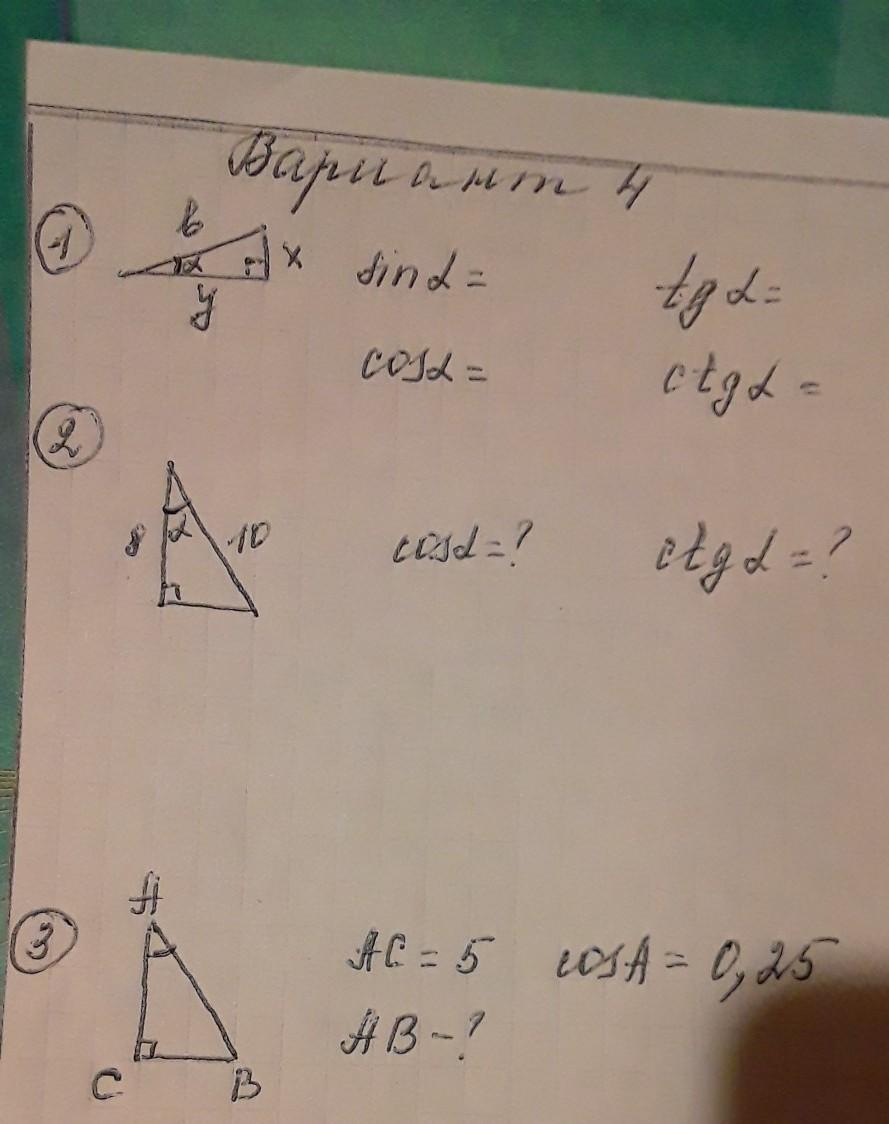 Вариант 4
1
b
α
x
y
sin α =
tg α =
cos α =
ctg α =
2
8
α
10
cos α = ?
ctg α = ?
3
A
C
B
AC = 5 cos A = 0,25
AB - ?